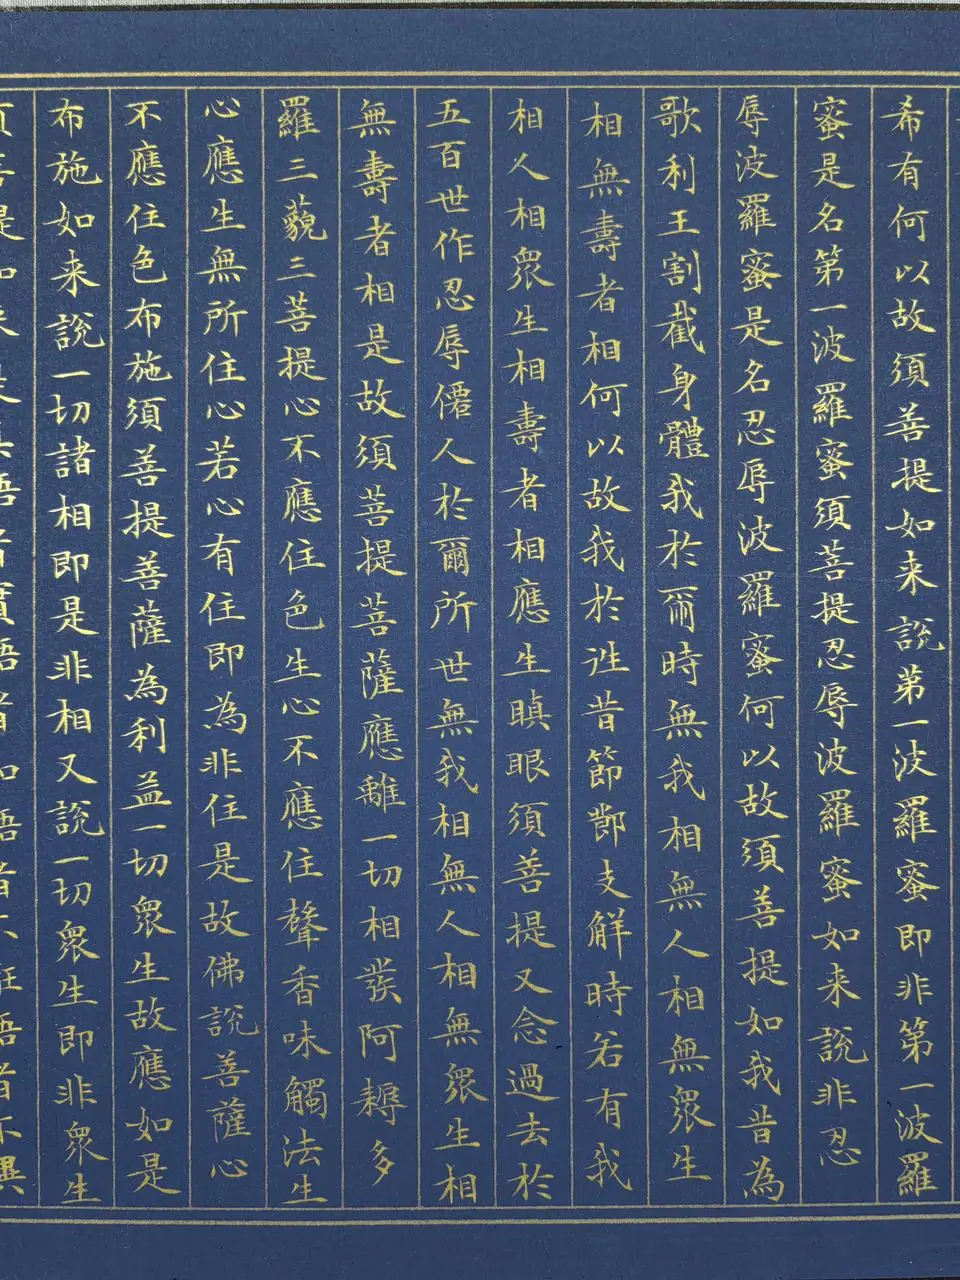 希有何以故須善提如来說第一波羅蜜即非第一波羅
蜜是名第一波羅蜜須菩提忍辱波羅蜜如来說非忍
辱波羅蜜是名忍辱波羅蜜何以故須善提如我昔為
歌利王割截身體我於爾時無我相無人相無衆生
相無壽者相何以故我於往昔節節支解時若有我
相人相衆生相壽者相應生瞋眼須善提又念過去於
五百世作忍辱僊人於爾所世無我相無人相無衆生相
無壽者相是故須菩提菩薩應離一切相發阿耨多
羅三藐三菩提心不應住色生心不應住聲香味觸法生
心應生無所住心若心有住即為非住是故佛說善薩心
不應住色布施須善提善薩為利益一切衆生故應如是
布施如来說一切諸相即是非相又說一切衆生即非衆生